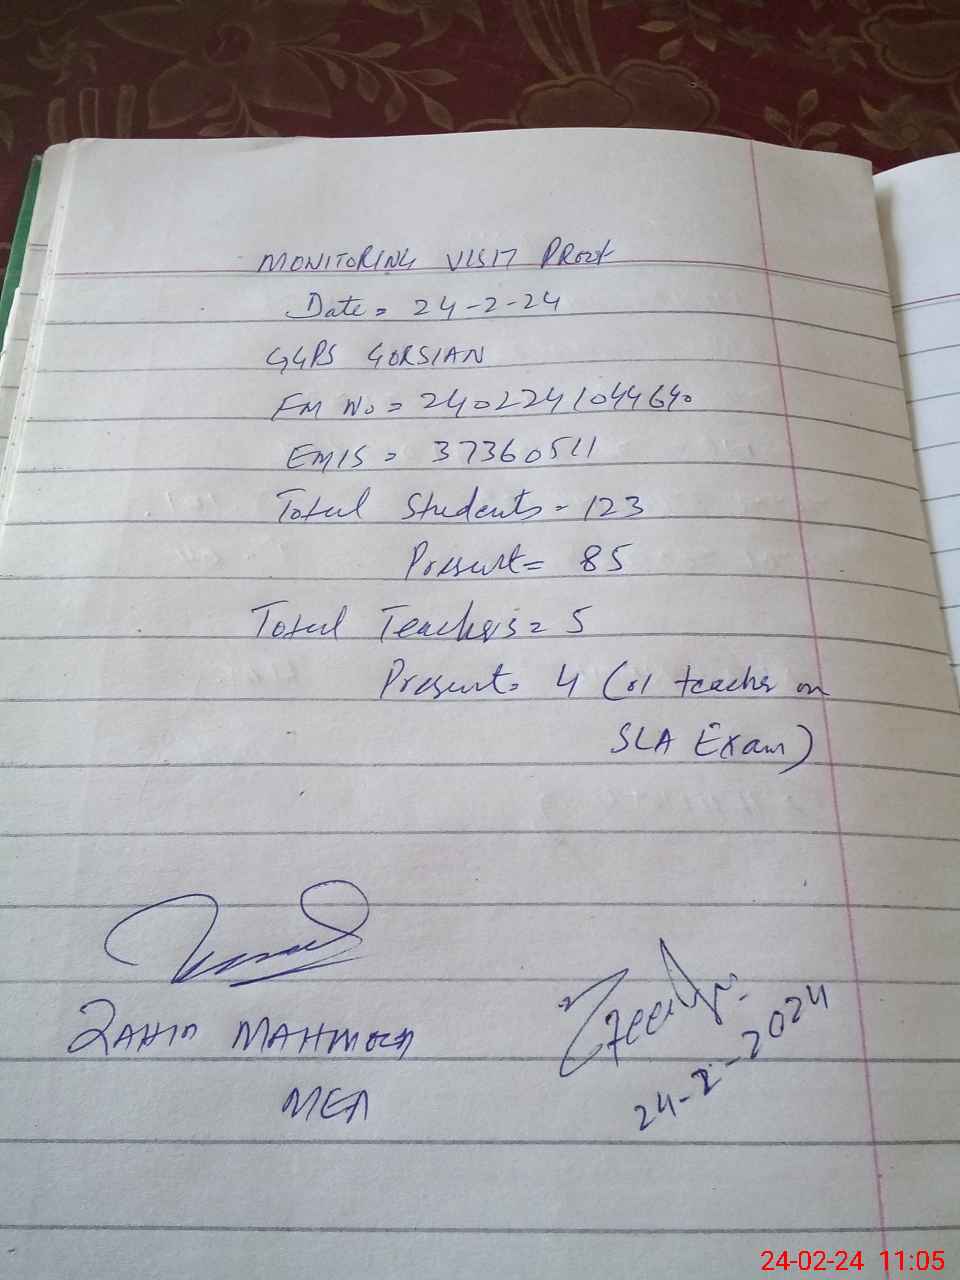 MONITORING VISIT PROOF
Date = 24-2-24
GGPS GORSIAN
FM No = 2402241044640
EMIS = 37360511
Total Students = 123
Present = 85
Total Teachers = 5
Present = 4 (01 teacher on
SLA Exam)
ZAHID MAHMOOD
MEA
24-2-2024
24-02-24 11:05